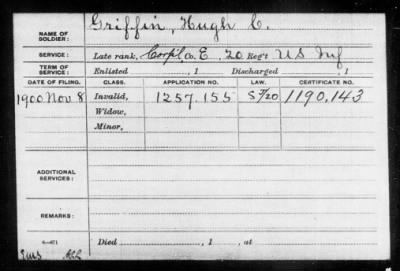 NAME OF SOLDIER: Griffin, Hugh C.
SERVICE: Late rank, Corpl Co. E, 20 Reg't US Inf
TERM OF SERVICE: Enlisted , 1 Discharged , 1
DATE OF FILING. CLASS. APPLICATION NO. LAW. CERTIFICATE NO.
1900 Nov 8 Invalid, 1257.155 1190,143
Widow,
Minor,
ADDITIONAL SERVICES:
REMARKS:
6—671 Died , 1 , at